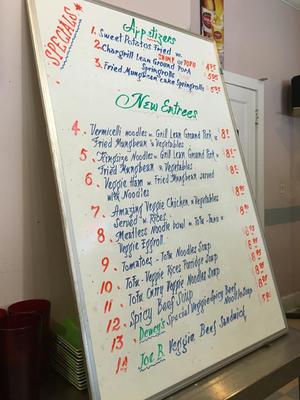 SPECIALS
Appetizers
1. Sweet Potatos Fried w.
SHRIMP or PORK
2. Chargrill Lean Ground Pork 4.95
Springrolls 5.95
3. Fried Mungbean cake Springrolls 5.95
New Entrees
4. Vermicelli noodles w. Grill Lean Ground Pork, n
Fried Mungbean n Vegetables
5. Kingsize Noodles w. Grill Lean Ground Pork, n
Fried Mungbean n Vegetables
6. Veggie Ham n Fried Mungbean Served
with Noodles
7. Amazing Veggie Chicken n Vegetables
Served w. Rices
8. Meatless Noodle bowl w. Tofu n
Veggie Eggroll
9. Tomatoes - Tofu Noodles Soup
10. Tofu Veggie Rices Porridge Soup
11. Tofu Curry Veggie Noodles Soup
12 Spicy Beef Soup
13 Dewey's Special Veggie Spicy Beef
Noodles Soup
14 Joe B. Veggie Beef Sandwich